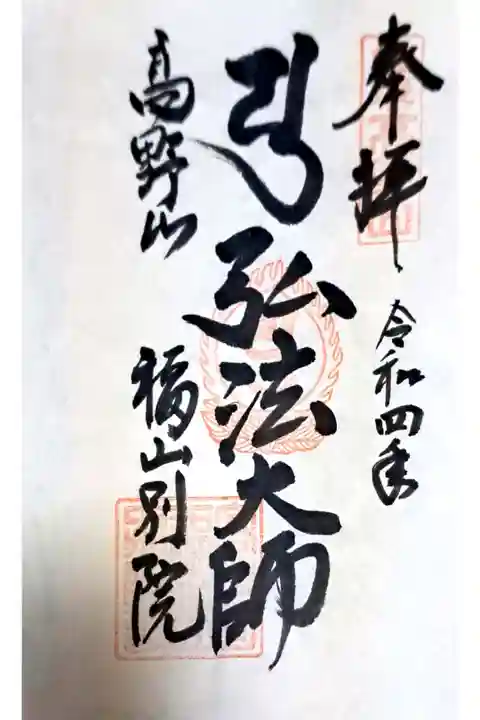 奉拝、令和四年
弘法大師
高野山
福山別院